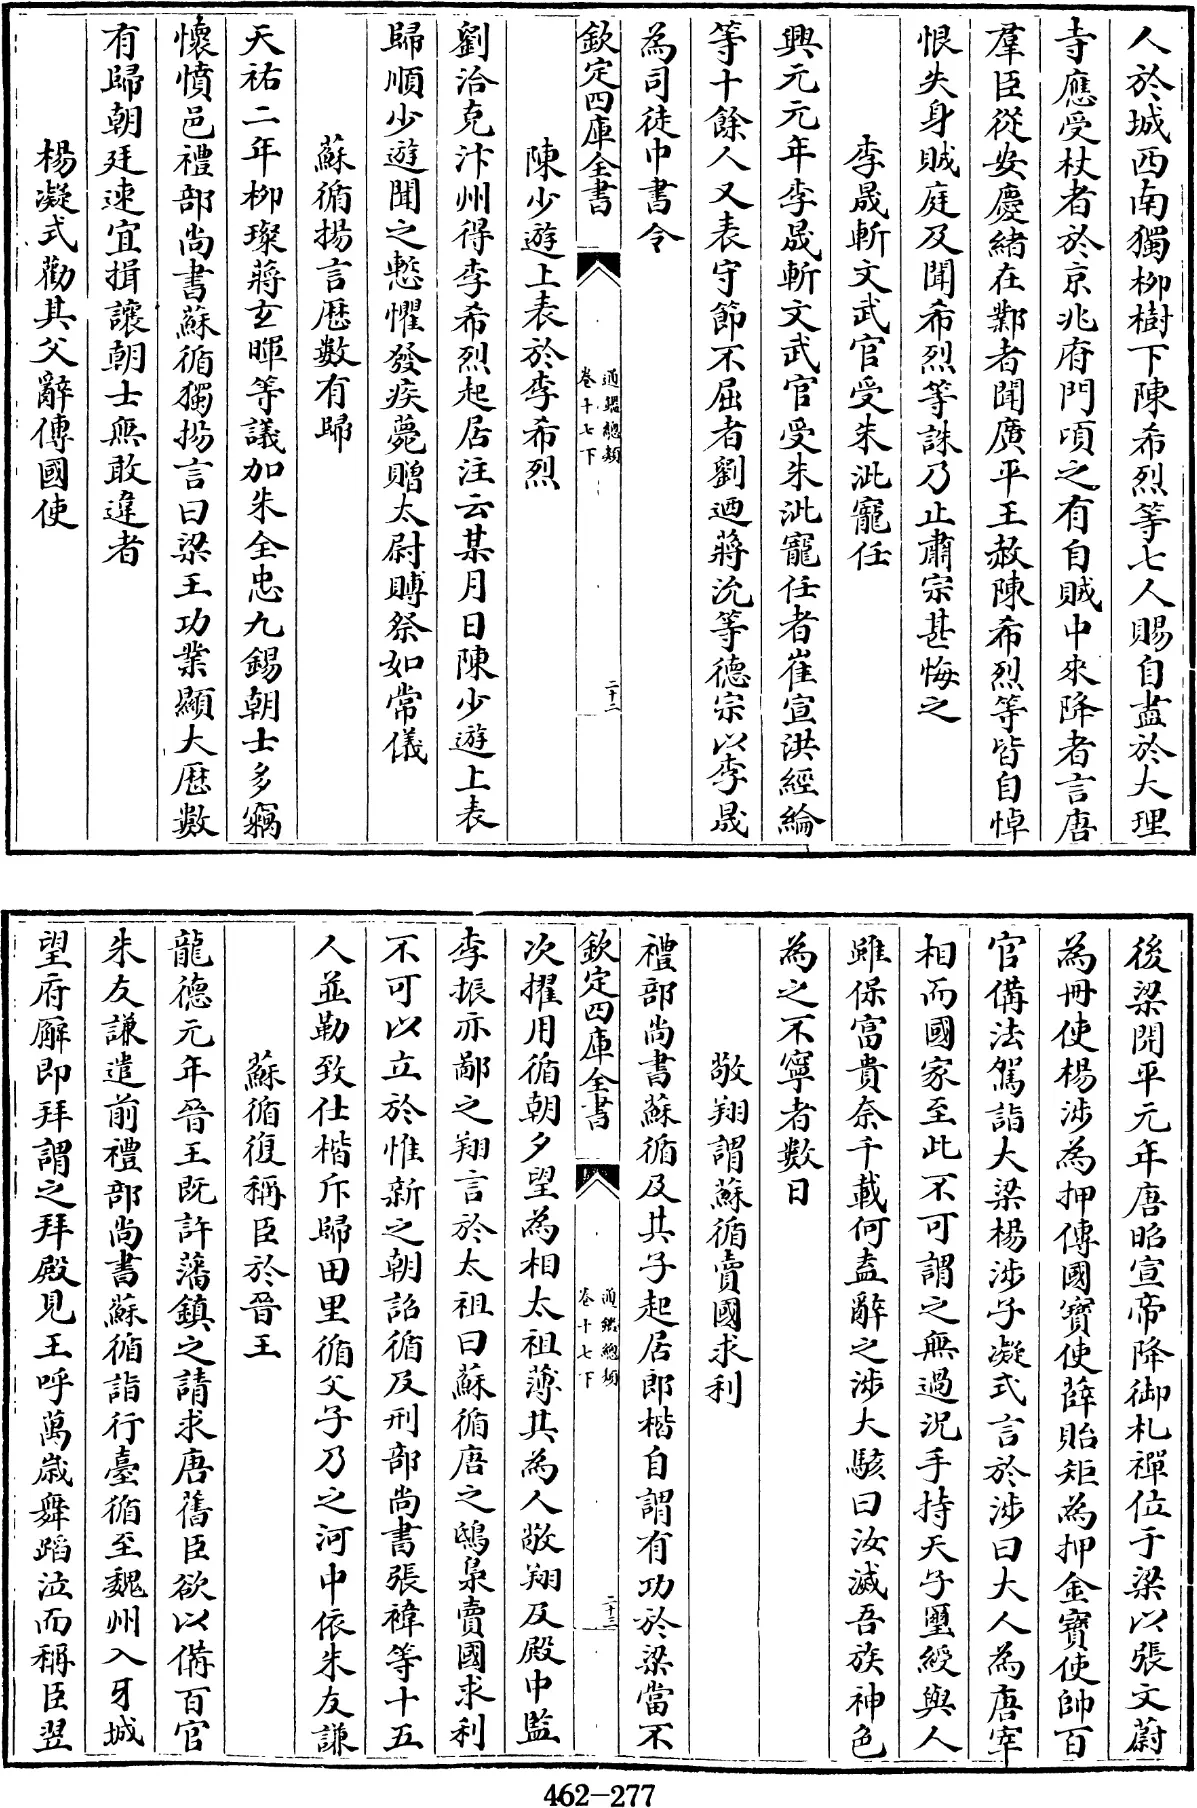 人於城西南獨柳樹下陳希烈等七人賜自盡於大理
寺應受杖者於京兆府門頃之有自賊中來降者言唐
羣臣從安慶緒在鄴者聞廣平王赦陳希烈等皆自悼
恨失身賊庭及聞希烈等誅乃止肅宗甚悔之
李晟斬文武官受朱泚寵任
興元元年李晟斬文武官受朱泚寵任者崔宣洪經綸
等十餘人又表守節不屈者劉迺蔣沇等德宗以李晟
為司徒中書令
欽定四庫全書
通鑑總類
卷十七下
二十二
陳少遊上表於李希烈
劉洽克汴州得李希烈起居注云某月日陳少遊上表
歸順少遊聞之慙懼發疾薨贈太尉賻祭如常儀
蘇循揚言歴數有歸
天祐二年柳璨蔣玄暉等議加朱全忠九錫朝士多竊
懷憤邑禮部尚書蘇循獨揚言曰梁王功業顯大歴數
有歸朝廷速宜揖讓朝士無敢違者
楊凝式勸其父辭傳國使
後梁開平元年唐昭宣帝降御札禪位于梁以張文蔚
為冊使楊涉為押傳國寳使薛貽矩為押金寳使帥百
官備法駕詣大梁楊涉子凝式言於涉曰大人為唐宰
相而國家至此不可謂之無過況手持天子璽綬與人
雖保富貴奈千載何盍辭之涉大駭曰汝滅吾族神色
為之不寧者數日
敬翔謂蘇循賣國求利
禮部尚書蘇循及其子起居郎楷自謂有功於梁當不
欽定四庫全書
通鑑總類
卷十七下
二十三
次擢用循朝夕望為相太祖薄其為人敬翔及殿中監
李振亦鄙之翔言於太祖曰蘇循唐之鴟梟賣國求利
不可以立於惟新之朝詔循及刑部尚書張禕等十五
人並勒致仕楷斥歸田里循父子乃之河中依朱友謙
蘇循復稱臣於晉王
龍德元年晉王既許藩鎮之請求唐舊臣欲以備百官
朱友謙遣前禮部尚書蘇循詣行臺循至魏州入牙城
望府廨即拜謂之拜殿見王呼萬歲舞蹈泣而稱臣翌
462-277